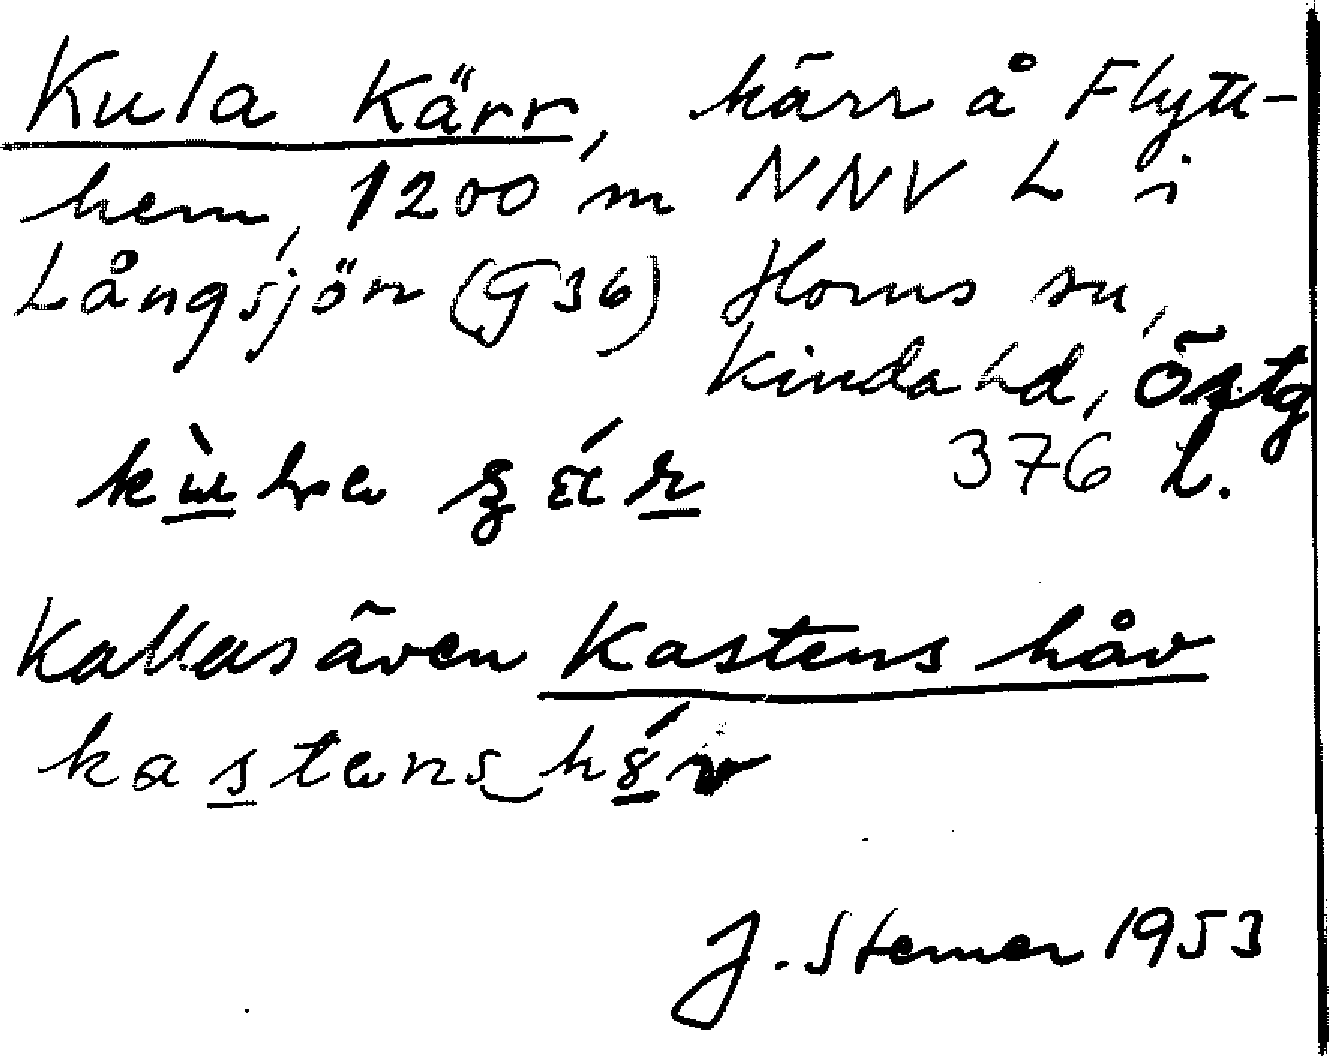 Kula Kärr, kärr å Flytt-
hem, 1200 m NNV L i
Långsjön (G36) Horns sn,
Kinda hd, Östg
376 L.
Kallas även Kastens håv
J. Sterner 1953